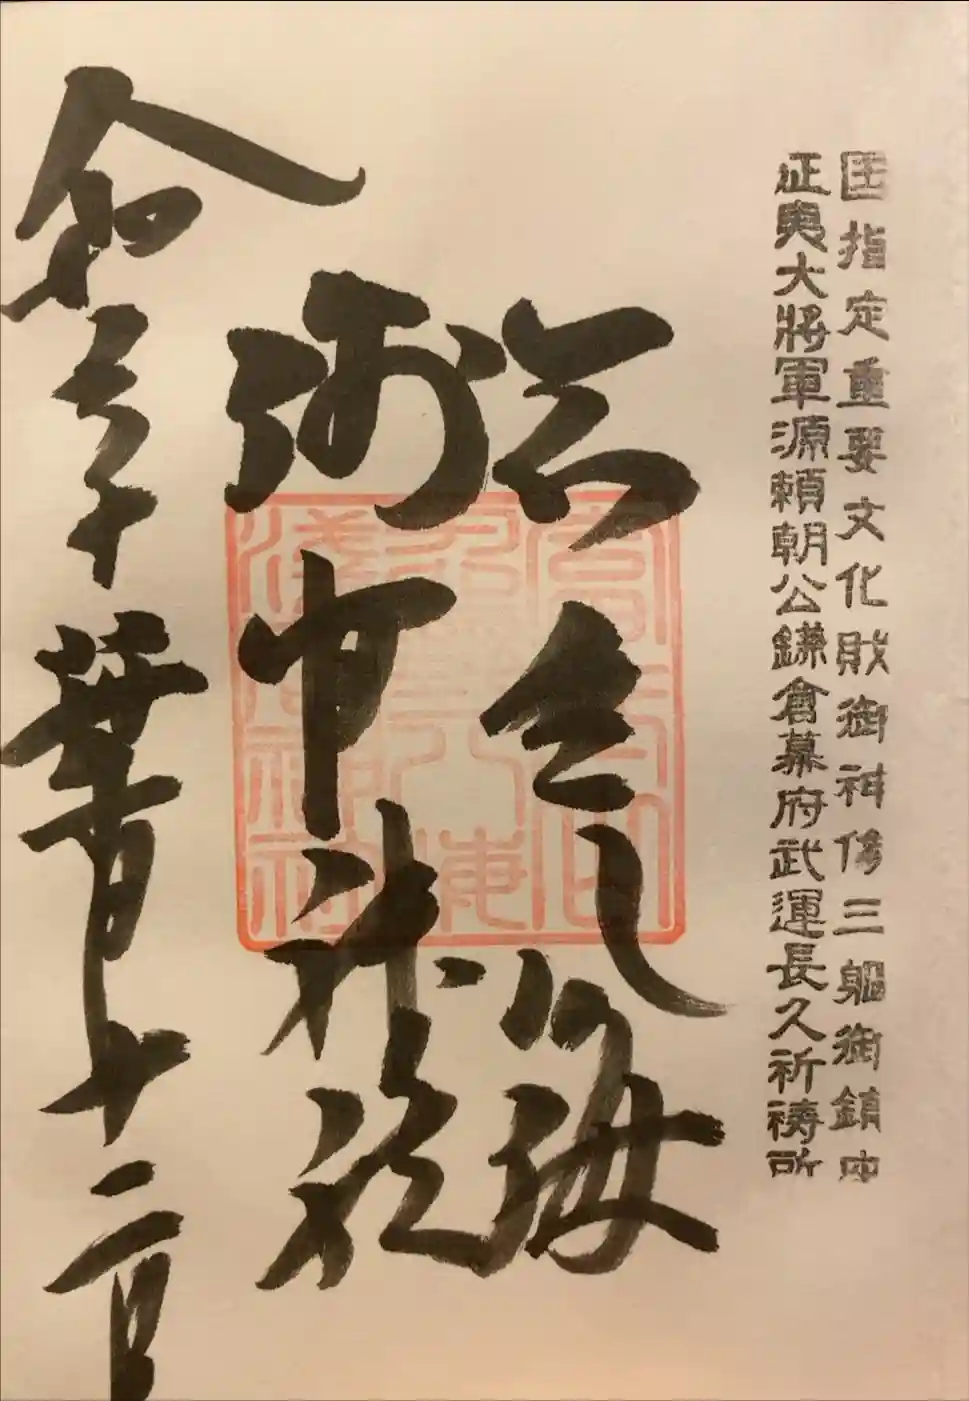 国指定重要文化財御神像三躯御鎮座
征夷大將軍源頼朝公鎌倉幕府武運長久祈祷所
八海
浅間神社
令和元年葉月十二日